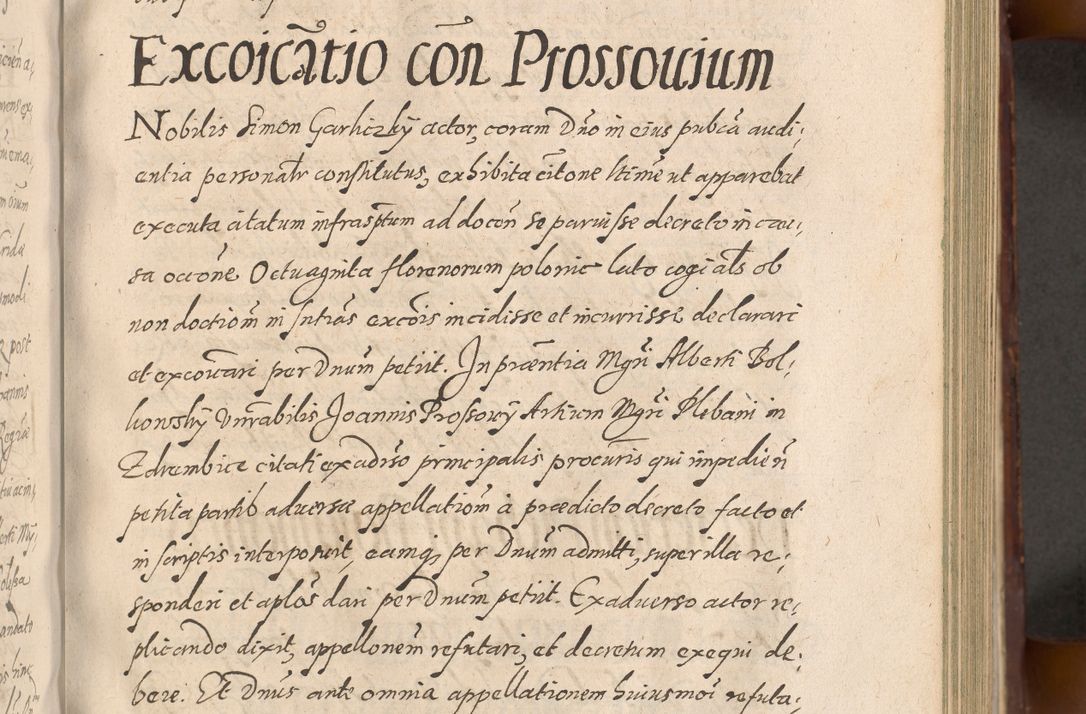 Excoicatio con Prossouium
Nobilis Simon Garliczky actor, coram Dno in eius pubca audi,
entia personalr constitutus, exhibita citone ltime ut apparebat
executa citatum infrasptum ad docon se paruisse decreto in cau,
sa occone Octuaginta florenorum polonic luto cogi als ob
non doctiom in sntias excois incidisse et incurrisse declarari
et excoicari per Dnum petiit. In praentia Mgri Alberti Bol,
kowsky Vnrabilis Joannis Prossowy Artium Mgri Plebani in
Zdrambice citati exaduso principalis procuris qui impedien
petita partib aduersae appellatiom à praedicto decreto facto et
in scriptis interposuit, eamq per Dnum admitti, super illa re,
sponderi et aplos dari per Dnum petiit. Exaduerso actor re,
plicando dixit, appellonem refutari, et decretum exequi de,
bere. Et Dnus ante omnia appellationem huiusmoi refuta,